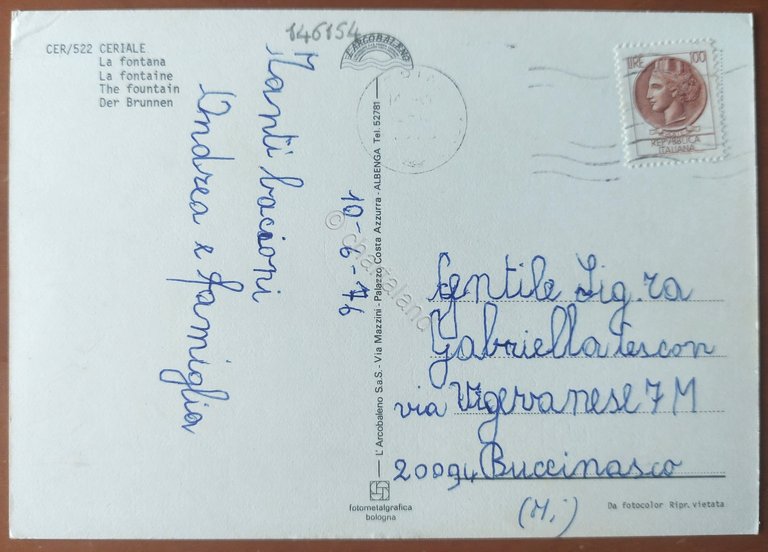 146154
CER/522 CERIALE
La fontana
La fontaine
The fountain
Der Brunnen
L'ARCOBALENO
Tanti bacioni
Andrea e famiglia
10-6-76
L'Arcobaleno S.a.S. - Via Mazzini - Palazzo Costa Azzurra - ALBENGA Tel. 52781
fotometalgrafica
bologna
LIRE 100
REPUBBLICA
ITALIANA
Gentile Sig.ra
Gabriella Tescon
via Vigevanese 7 M
20094 Buccinasco
(Mi)
Da fotocolor Ripr. vietata